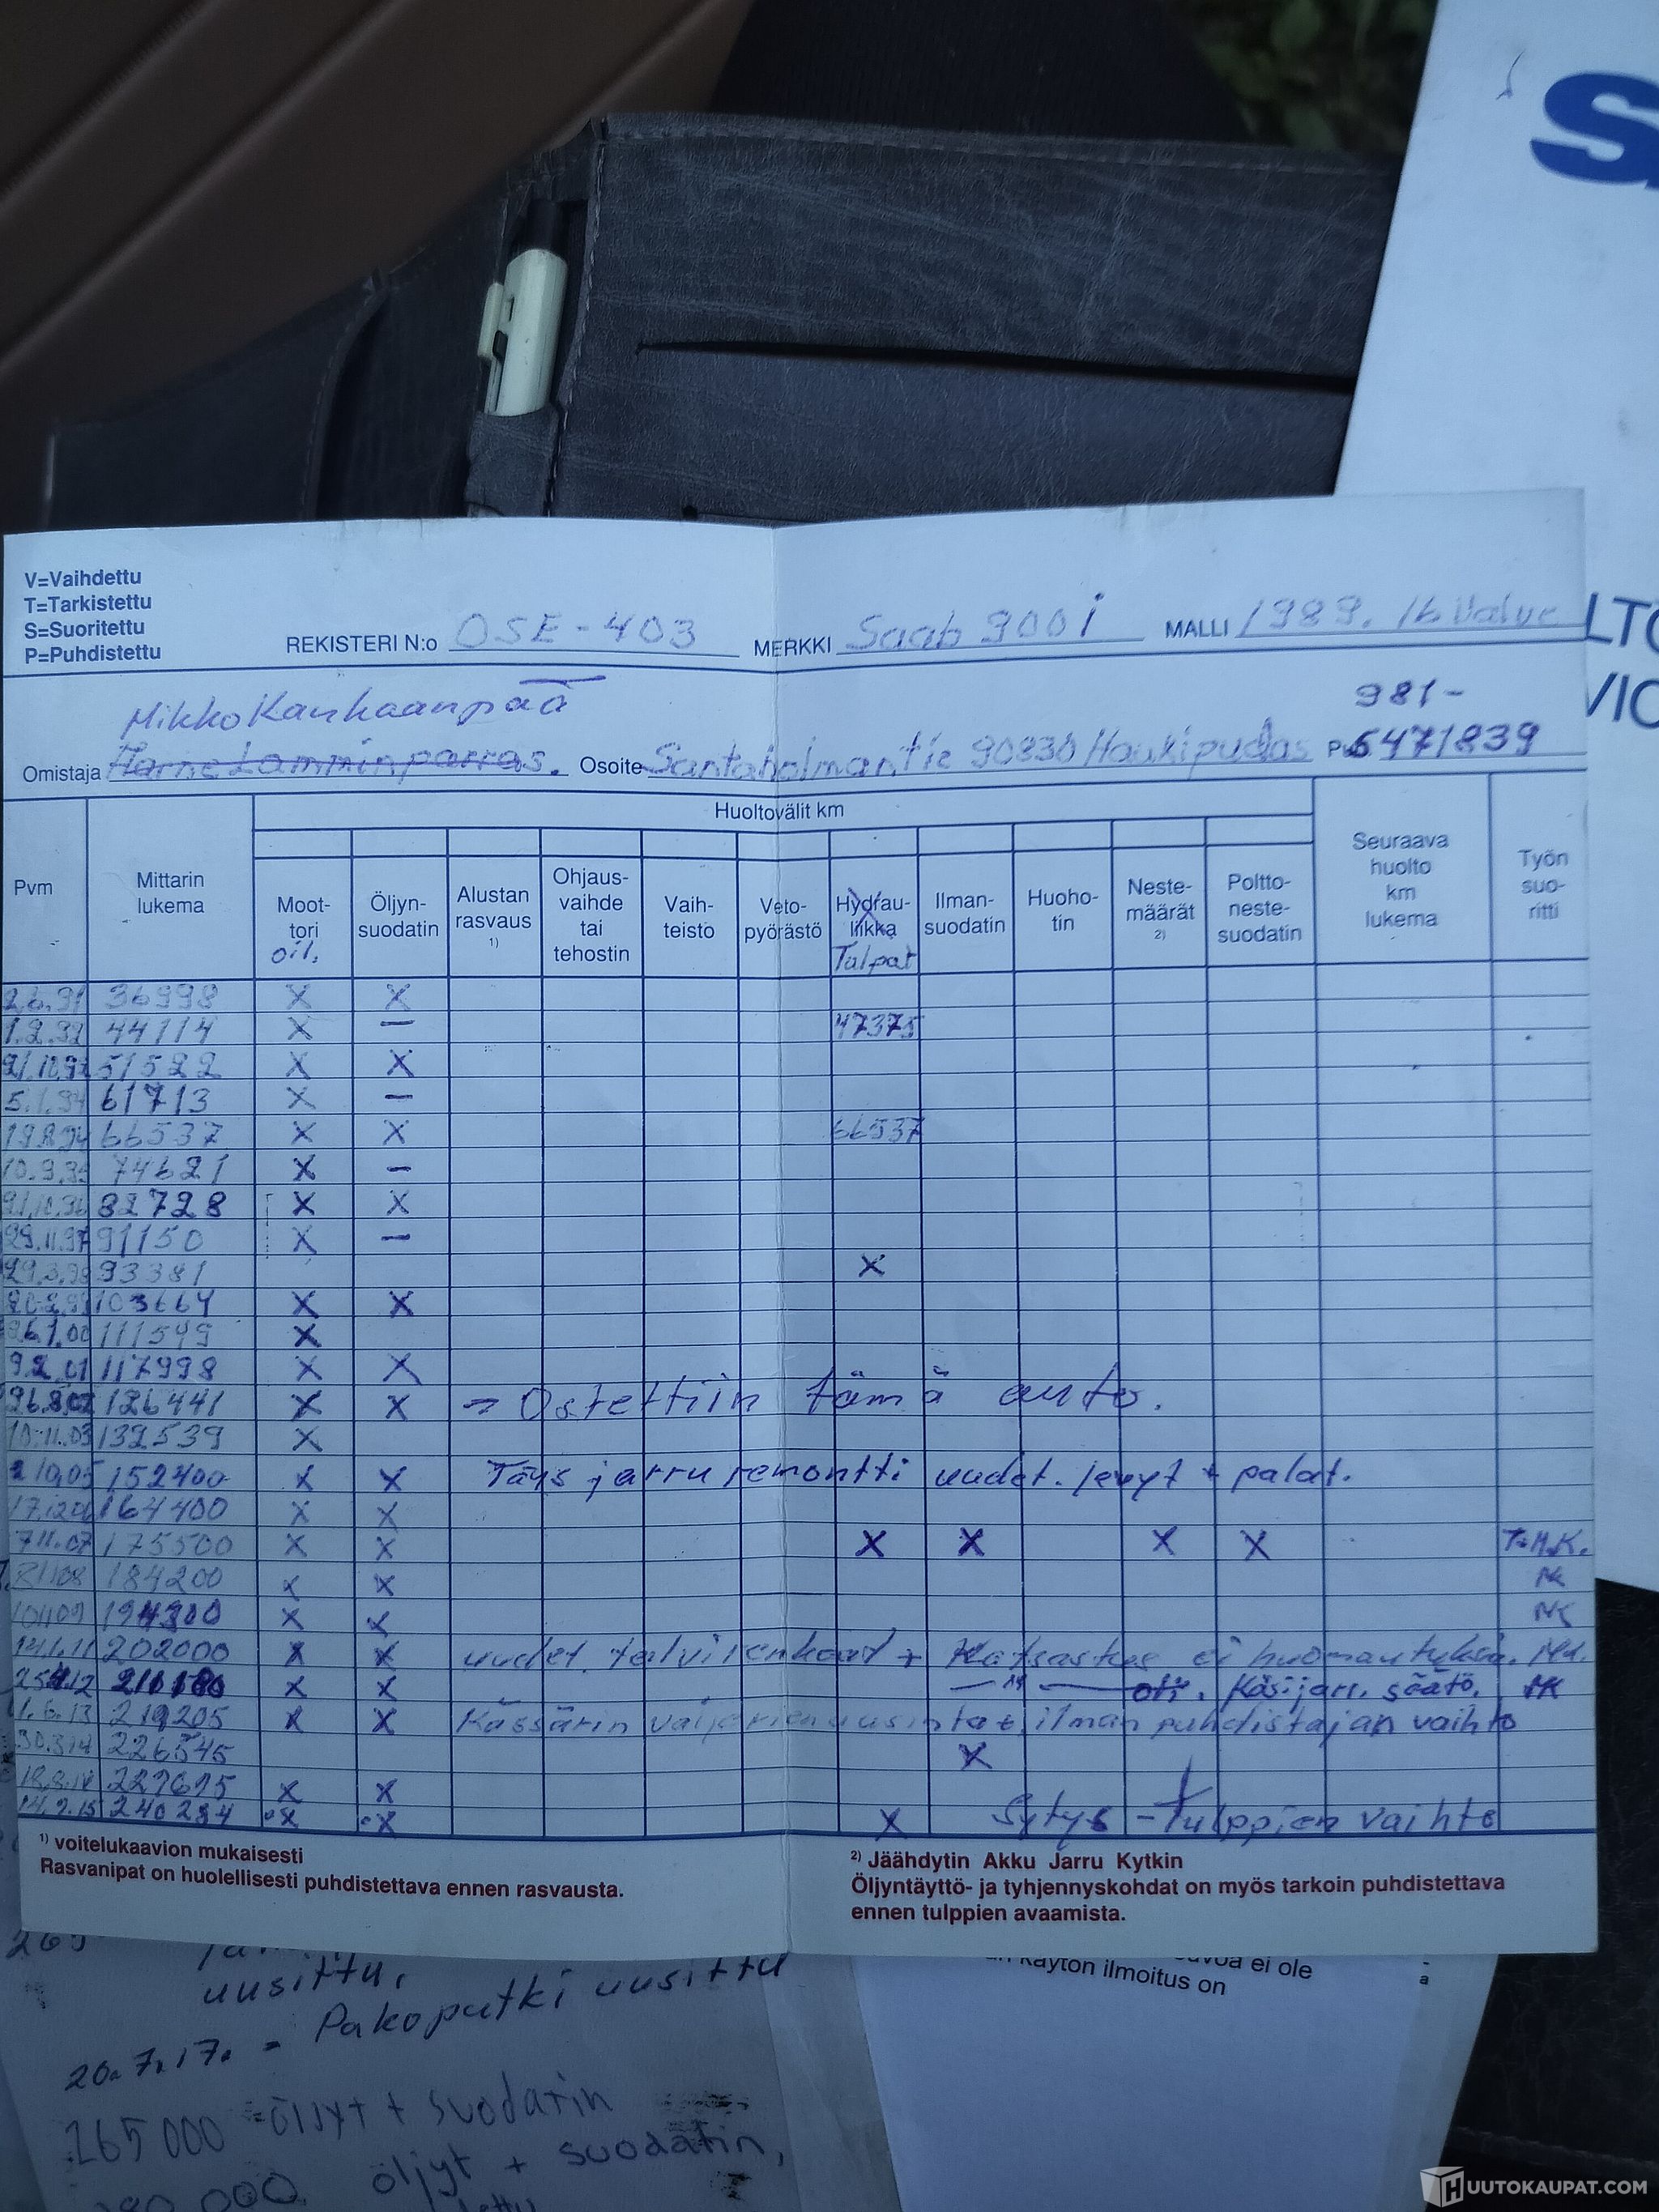 V=Vaihdettu
T=Tarkistettu
S=Suoritettu
P=Puhdistettu
REKISTERI N:o OSE-403 MERKKI Saab 900 i MALLI 1989. 16 Valve
Mikko Kanhaanpää 981-
Omistaja Osoite Santaholmantie 90830 Haukipudas 5471839
Huoltovälit km
Pvm
Mittarin lukema
Moottori oil.
Öljyn-suodatin
Alustan rasvaus 1)
Ohjaus-vaihde tai tehostin
Vaih-teisto
Veto-pyörästö
Hydrau-liikka Tulpat
Ilman-suodatin
Huoho-tin
Neste-määrät 2)
Poltto-neste-suodatin
Seuraava huolto km lukema
Työn suo-ritti
36998 X X
1.2.92 44114 X — 47375
51522 X X
5.1.94 61713 X —
66537 X X 66537
74621 X —
82728 X X
29.11.97 91150 X —
93381 X
103664 X X
26.1.00 111549 X
9.2.01 117998 X X
126441 X X = Ostettiin tämä auto.
10.11.03 132539 X
152400 X X Täys jarru remontti uudet. levyt + palat.
164400 X X
7.11.07 175500 X X X X X X
184200 X X
X X
202000 X X uudet. talvirenkaat + Katsastus ei huomautuksia.
X X Käsijarr. säätö.
219205 X X Kässärin vaijerien uusinta + ilman puhdistajan vaihto
226545 X
X X
14.9.15 240284 X X X Sytys - tulppien vaihto
1) voitelukaavion mukaisesti
Rasvanipat on huolellisesti puhdistettava ennen rasvausta.
2) Jäähdytin Akku Jarru Kytkin
Öljyntäyttö- ja tyhjennyskohdat on myös tarkoin puhdistettava
ennen tulppien avaamista.
uusittu.
20.7.17. - Pakoputki uusittu
265 000 öljyt + suodatin
öljyt + suodatin,
ei ole
käytön ilmoitus on
HUUTOKAUPAT.COM